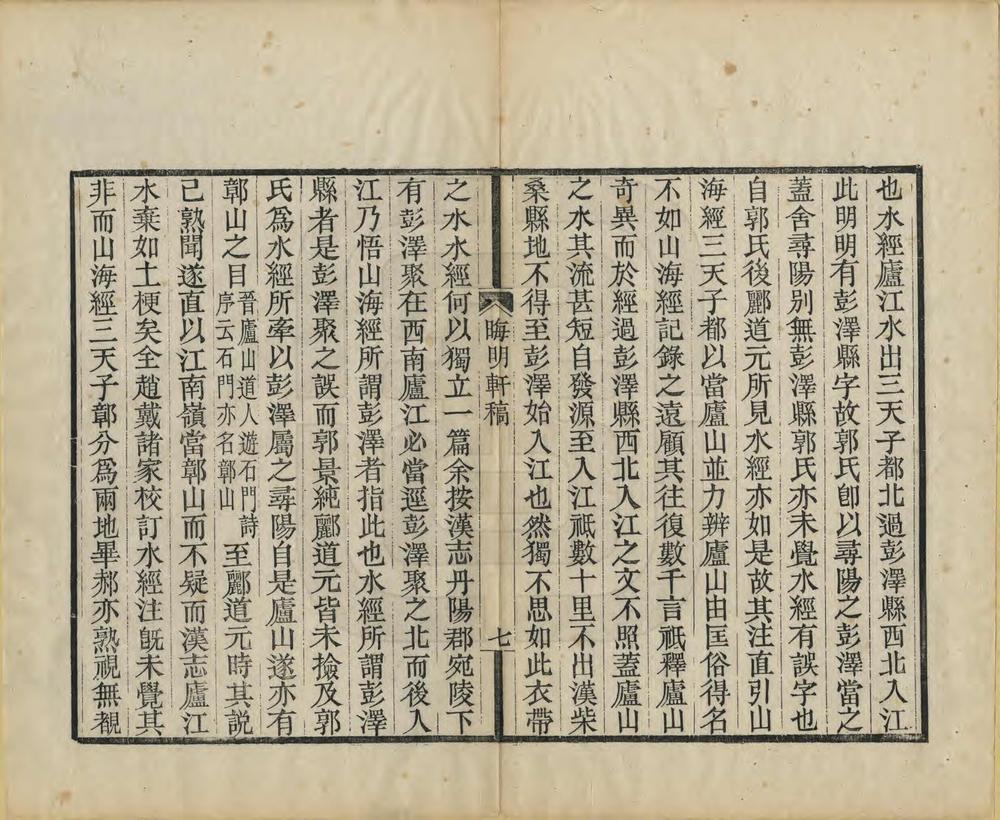 也水經廬江水出三天子都北過彭澤縣西北入江
此明明有彭澤縣字故郭氏卽以尋陽之彭澤當之
蓋舍尋陽別無彭澤縣郭氏亦未覺水經有誤字也
自郭氏後酈道元所見水經亦如是故其注直引山
海經三天子都以當廬山並力辨廬山由匡俗得名
不如山海經記錄之遠顧其往復數千言祇釋廬山
奇異而於經過彭澤縣西北入江之文不照蓋廬山
之水其流甚短自發源至入江祇數十里不出漢柴
桑縣地不得至彭澤始入江也然獨不思如此衣帶
晦明軒稿
七
之水水經何以獨立一篇余按漢志丹陽郡宛陵下
有彭澤聚在西南廬江必當逕彭澤聚之北而後入
江乃悟山海經所謂彭澤者指此也水經所謂彭澤
縣者是彭澤聚之誤而郭景純酈道元皆未撿及郭
氏爲水經所牽以彭澤屬之尋陽自是廬山遂亦有
鄣山之目晉廬山道人遊石門詩序云石門亦名鄣山至酈道元時其說
已熟聞遂直以江南嶺當鄣山而不疑而漢志廬江
水棄如土梗矣全趙戴諸家校訂水經注旣未覺其
非而山海經三天子鄣分爲兩地畢郝亦熟視無覩